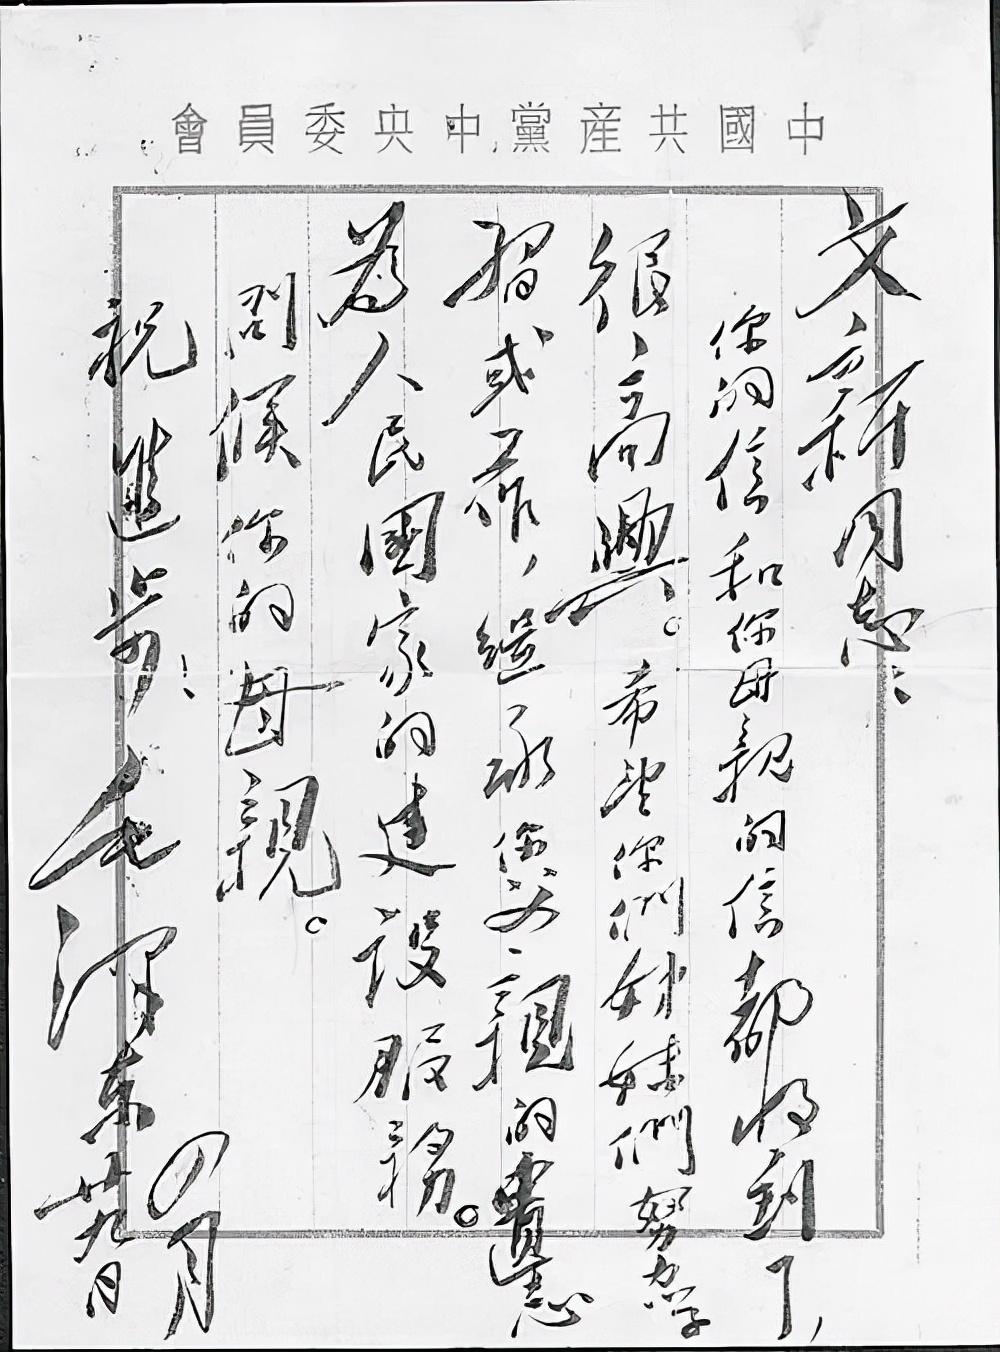 中國共産黨中央委員會
文新同志：
你的信和你母親的信都收到了，
很高興。希望你們姊妹們努力學
習或工作，繼承你父親的遺志
為人民國家的建設服務。
問候你的母親。
祝進步！
毛澤東
四月廿九日